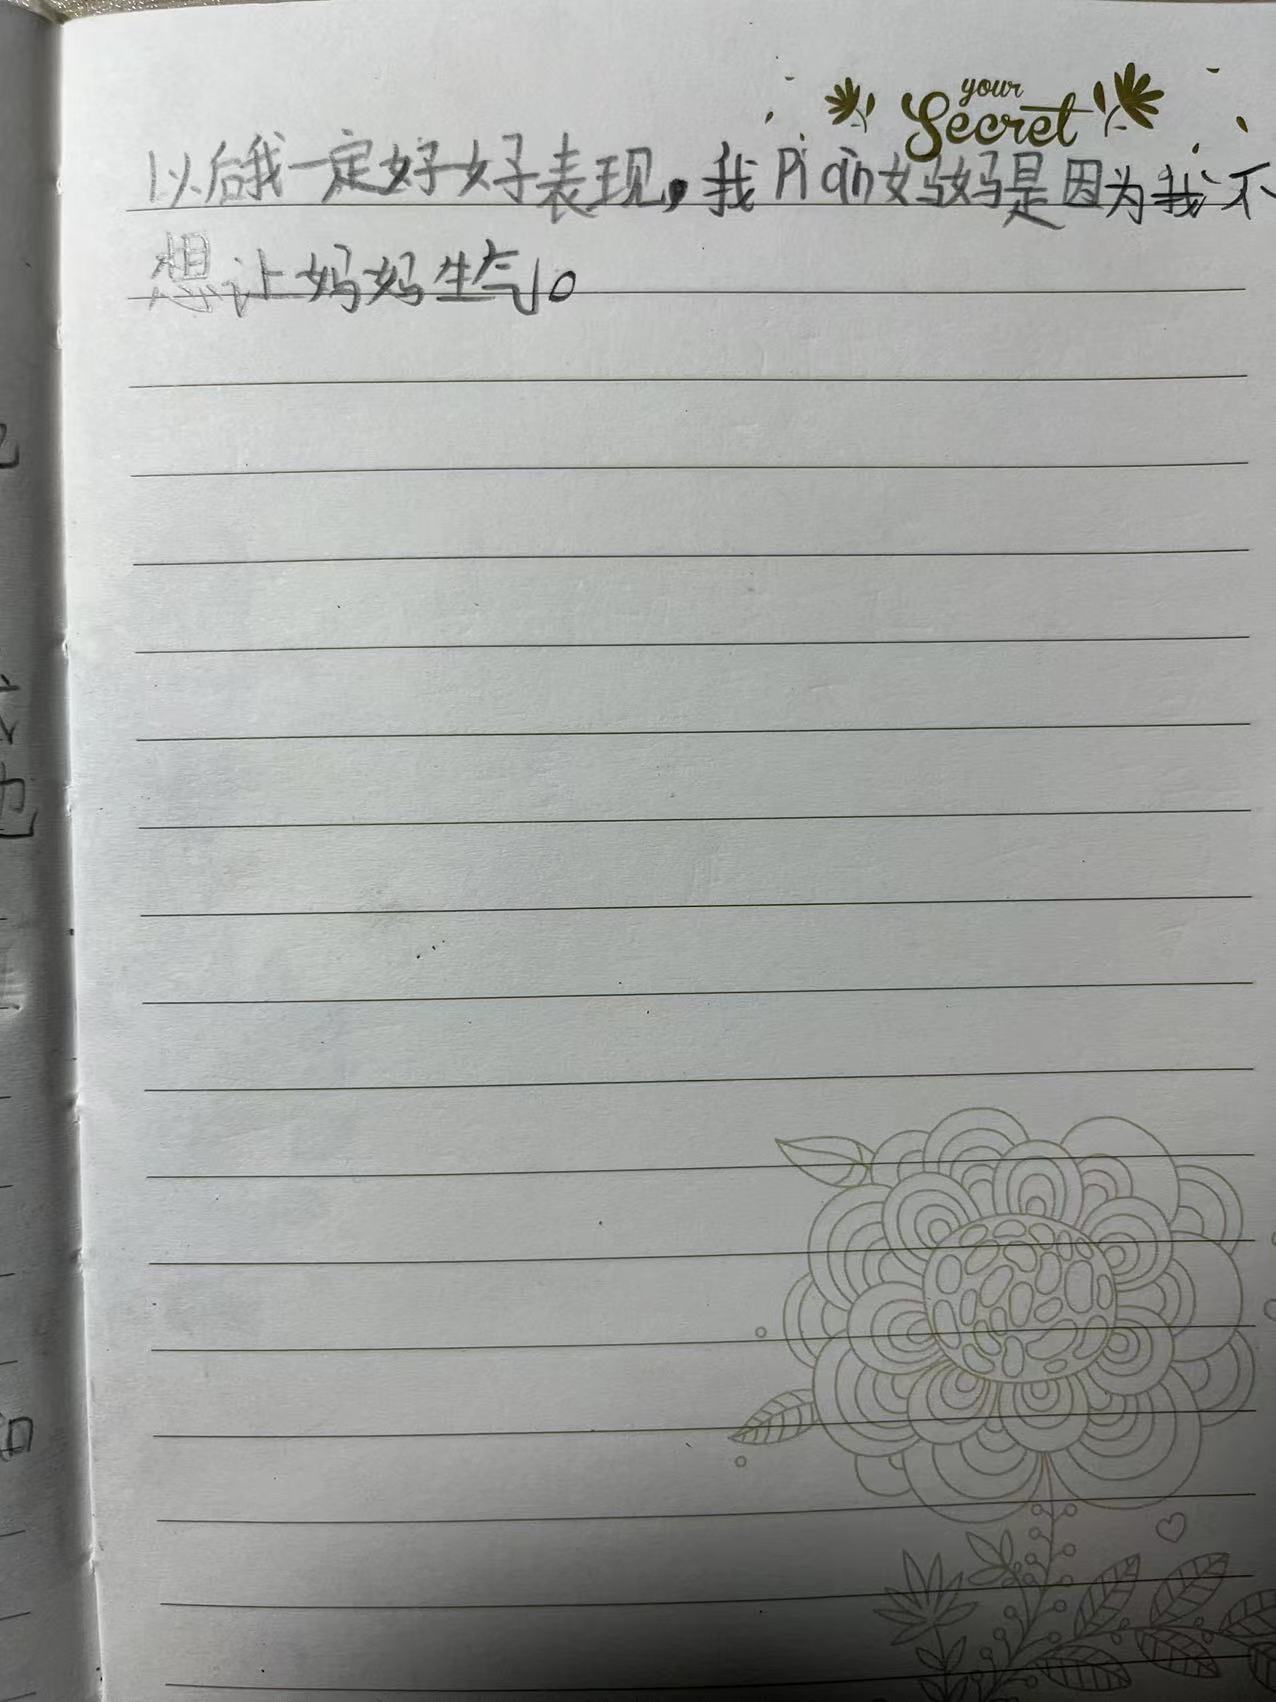 your
Secret
以后我一定好好表现，我Piàn妈妈是因为我不
想让妈妈生气。